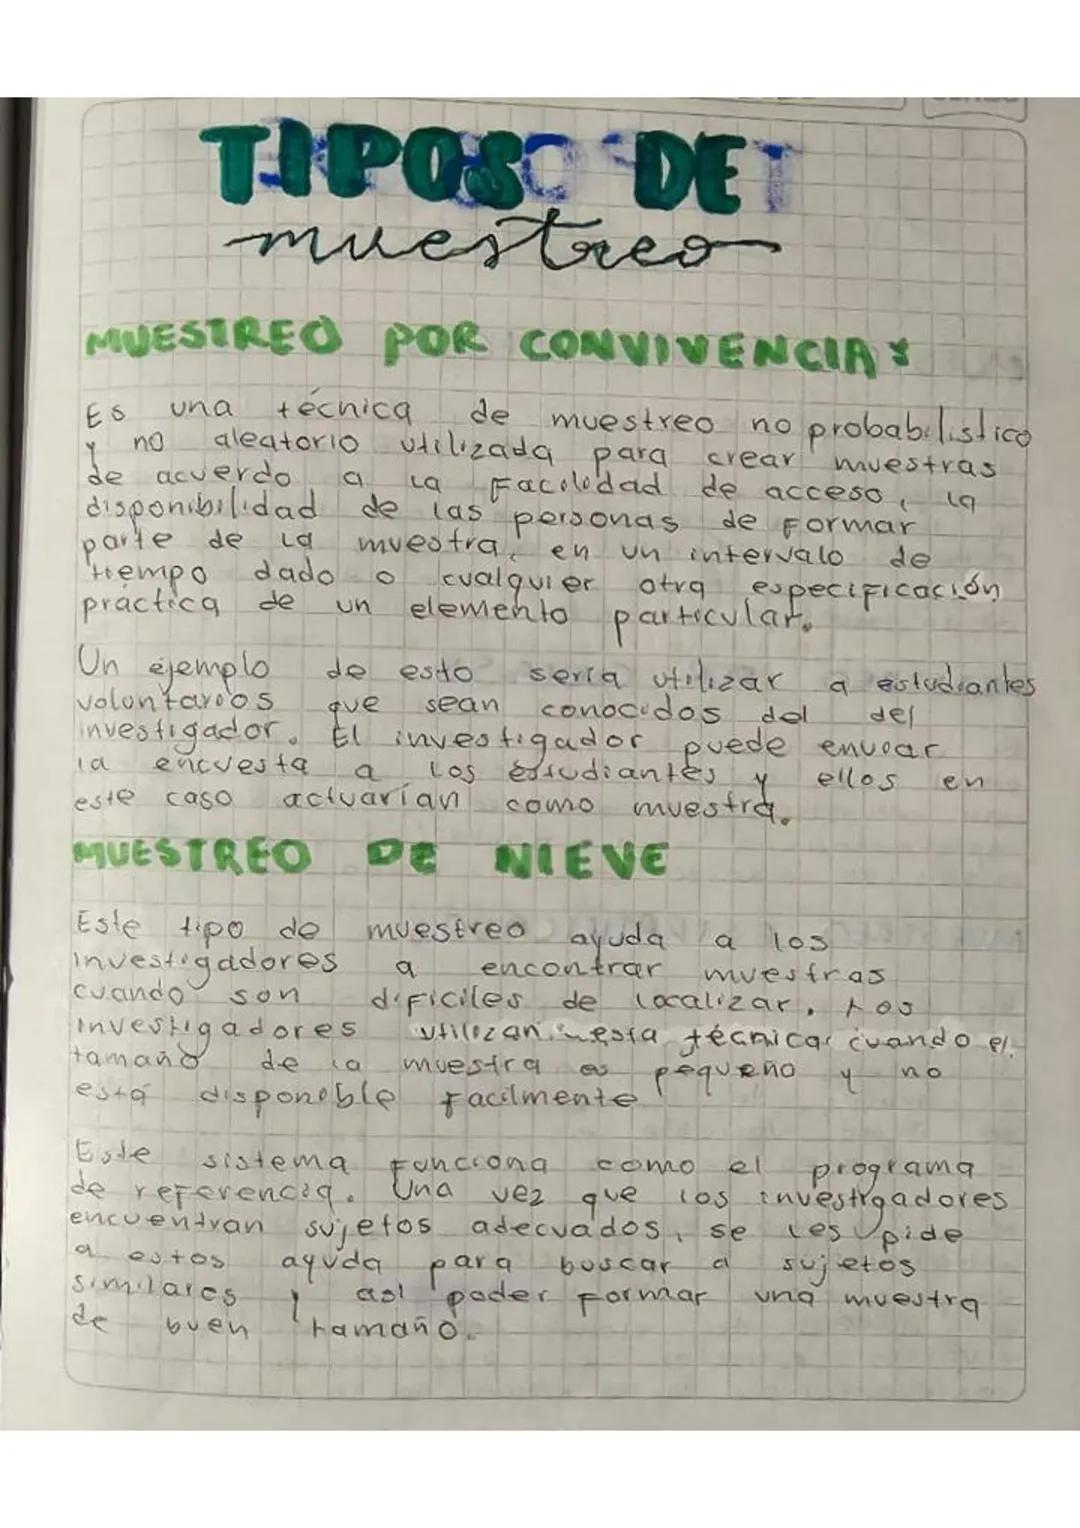 TIPOS DE
muestreo
MUESTREO POR CONVIVENCIA
Es una técnica de muestreo no probabilistico
y no aleatorio utilizada para crear muestras
de acuerdo a la facilidad de acceso, la
disponibilidad de las personas de formar
parte de la muestra, en un intervalo de
tiempo dado o cualquier otra especificación
práctica de un elemento particular.
Un ejemplo de esto sería utilizar a estudiantes
voluntarios que sean conocidos del del
investigador. El investigador puede enviar
la encuesta a los estudiantes y ellos en
este caso actuarían como muestra.
MUESTREO DE NIEVE
Este tipo de muestreo ayuda a los
investigadores a encontrar muestras
cuando son dificiles de localizar. Los
investigadores utilizan esta técnica cuando el
tamaño de la muestra es pequeño y no
está disponible facilmente
Este sistema funciona como el programa
de referencia. Una vez que los investigadores
encuentran sujetos adecuados, se les pide
a estos ayuda para buscar a sujetos
similares y asi poder formar una muestra
de buen tamaño.